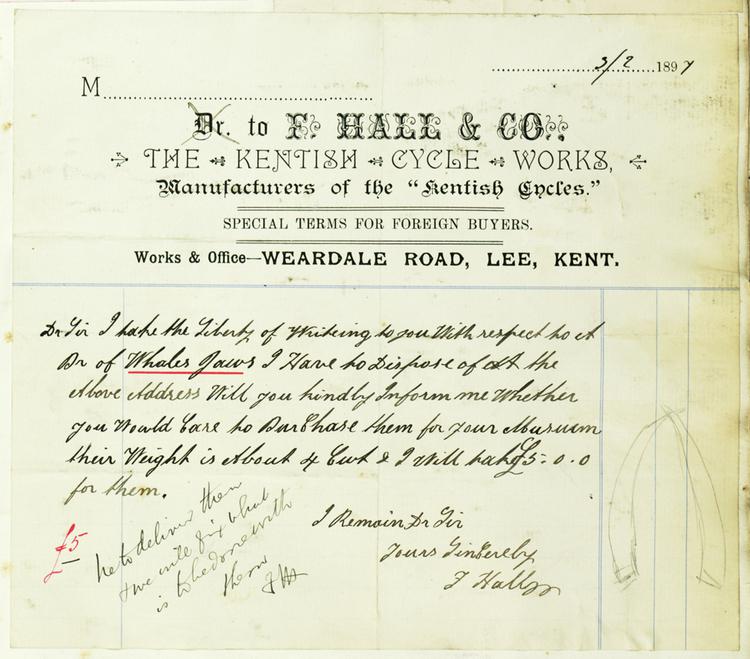 3/2 1897
M
Dr. to F. HALL & CO.,
THE KENTISH CYCLE WORKS,
Manufacturers of the "Kentish Cycles."
SPECIAL TERMS FOR FOREIGN BUYERS.
Works & Office—WEARDALE ROAD, LEE, KENT.
Dr Sir I take the Liberty of Writeing to you With respect to A
Pr of Whales Jaws I Have to Dispose of at the
Above Address Will you kindly Inform me Whether
you Would Care to Purchase them for your Museum
their Weight is About 4 Cwt & I Will take £5-0.0
for them.
I Remain Dr Sir
Yours Sincerely
F Hall
£5
he to deliver them
& we will fix what
is to be done with
them